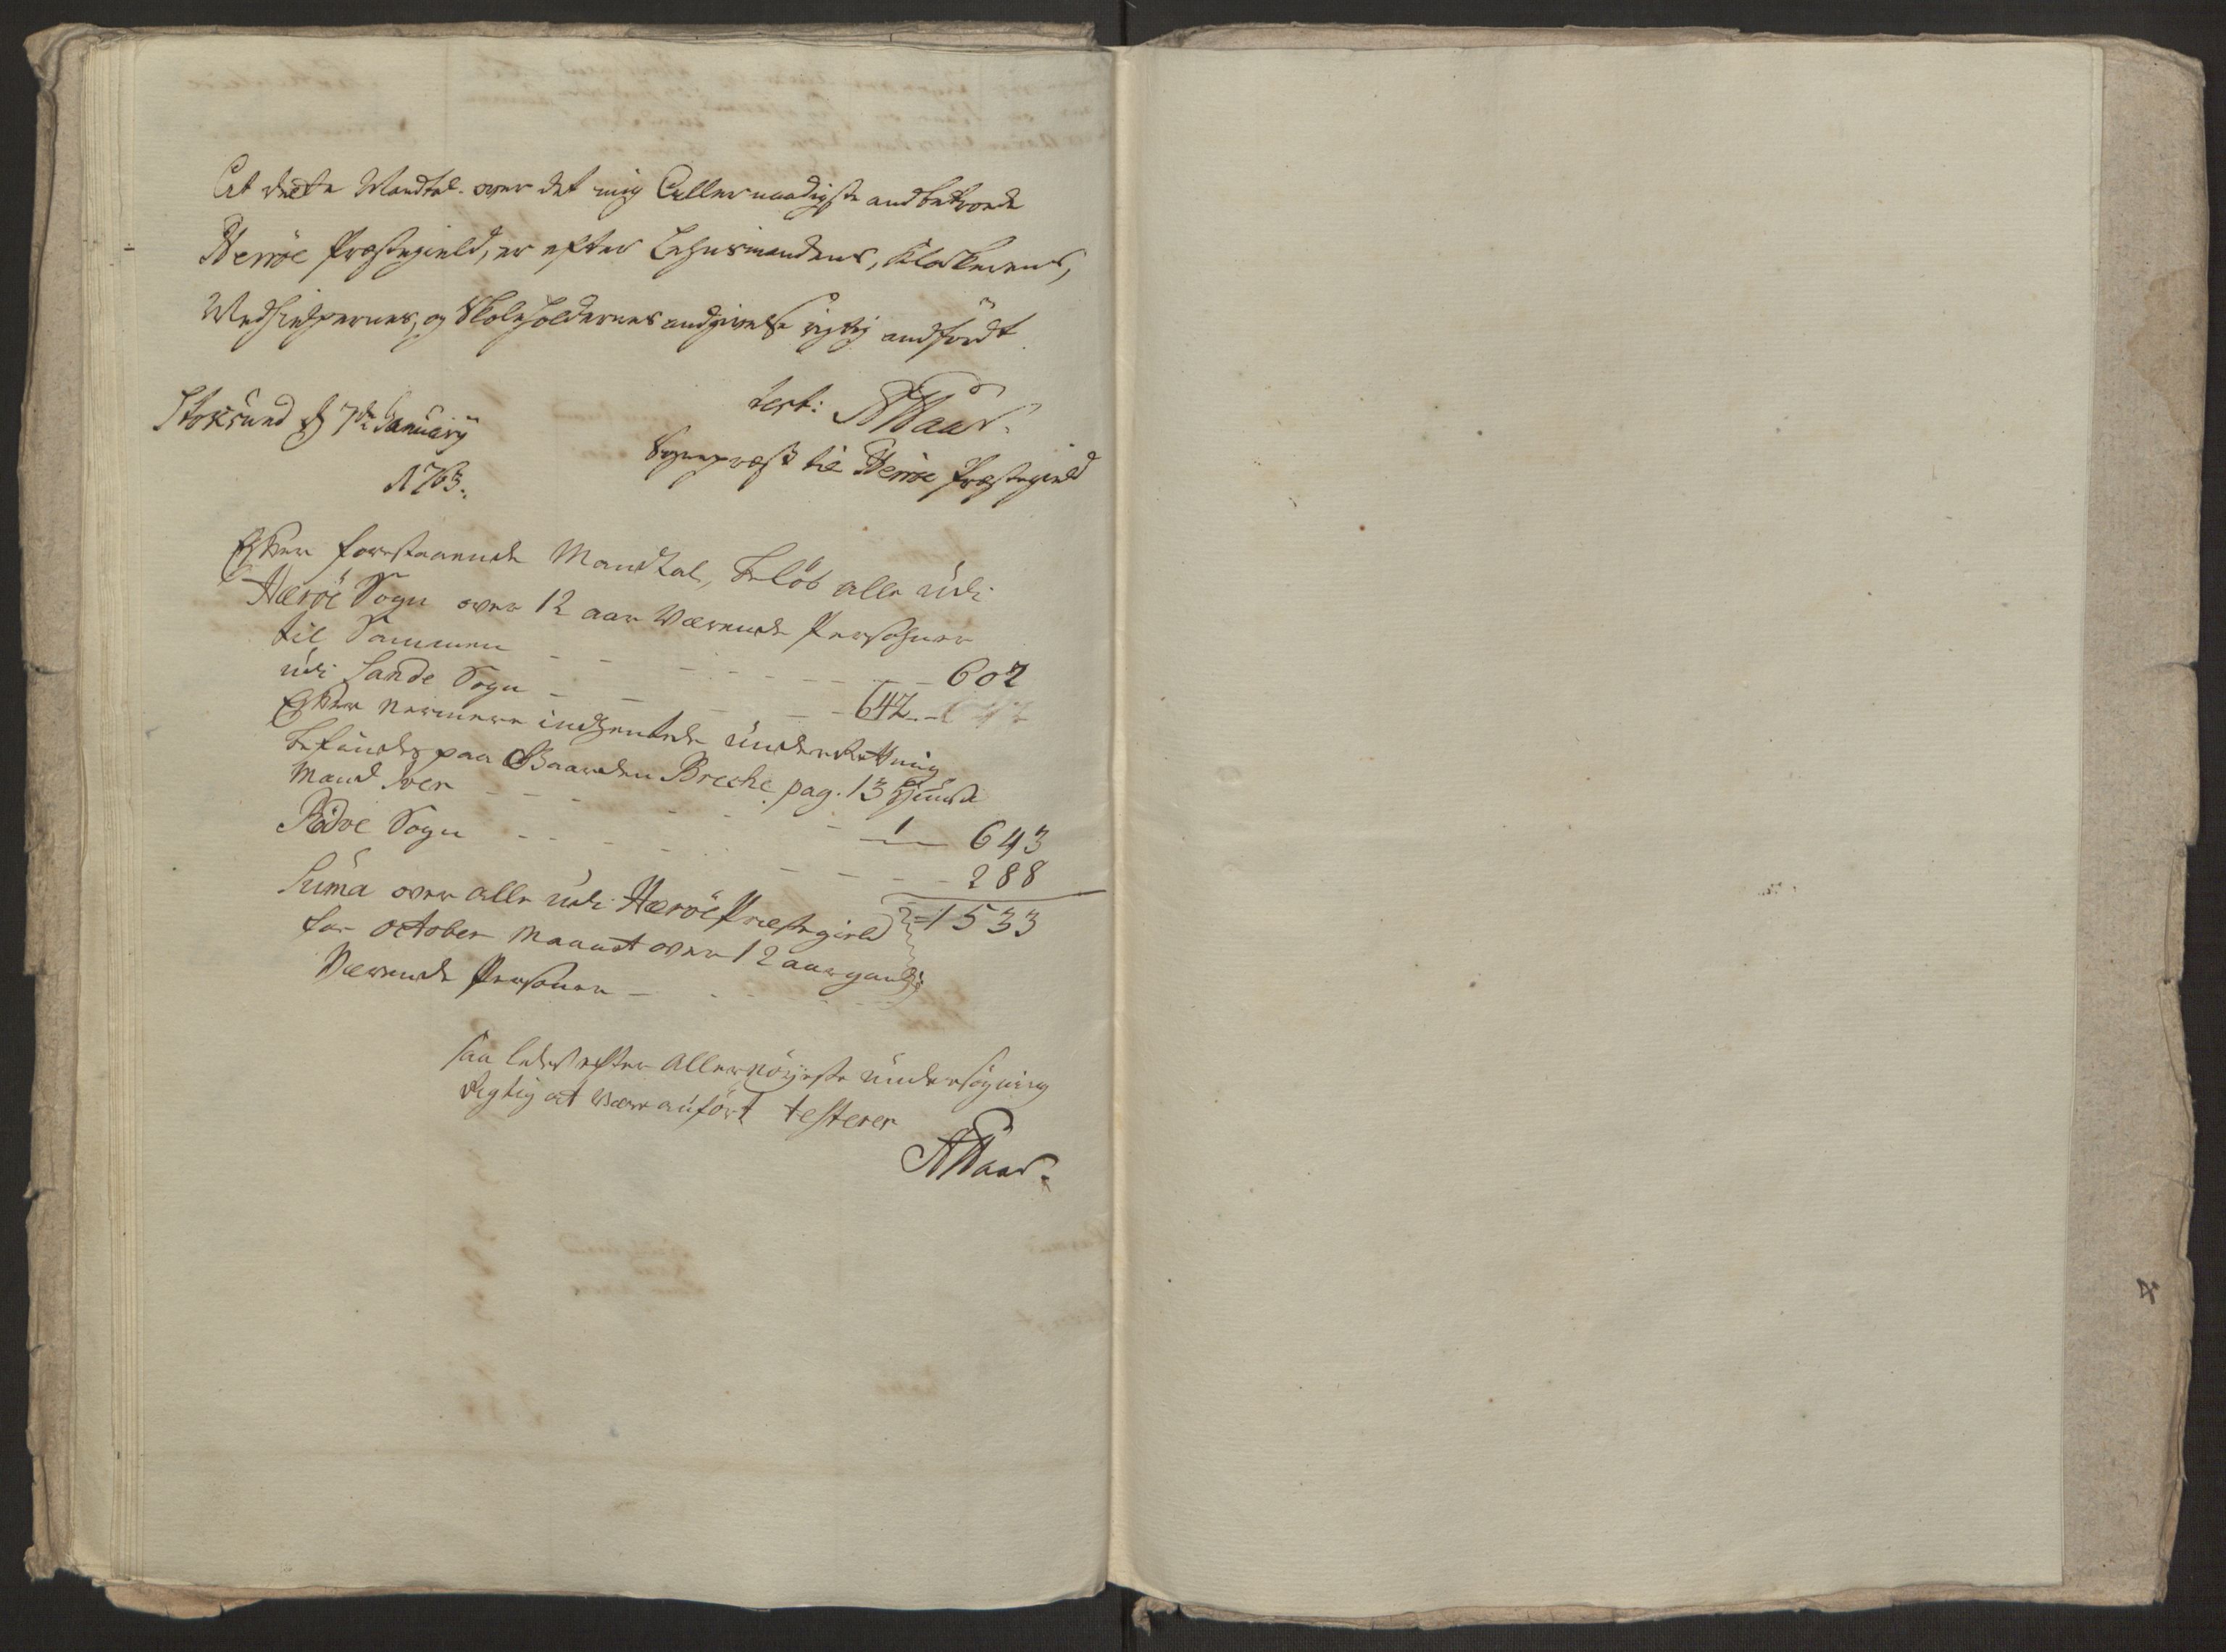 At dette Mandtal over det mig Allernaadigste andbetroede
Herröe Præstegield, er efter Lehnsmandens, Klokerens,
Medhielpernes, og Skoleholdernes andgivelse rigtig andfördt
Stoksund d 7de Januarij
1763.
test: AWaar.
Sognepræst til Herröe Præstegield
Efter forestaaende Mandtal, belöb alle udi
Heröe Sogn over 12 aar Værende Persohner
til Sammen - - - - - - 602
udi Sande Sogn - - - - 642
Efter nermere indhentede underretning
befindes paa Gaarden Breche pag. 13
Mand Iver - - - - 1 643
Rödve Sogn - - - - - 288
Suma over alle udi Heröe Præstegield = 1533
for October Maanet over 12 aar gamle
Værende Personer - - -
saa ledes efter allernöyeste undersögning
Rigtig at være anfört testerer
AWaar.
4